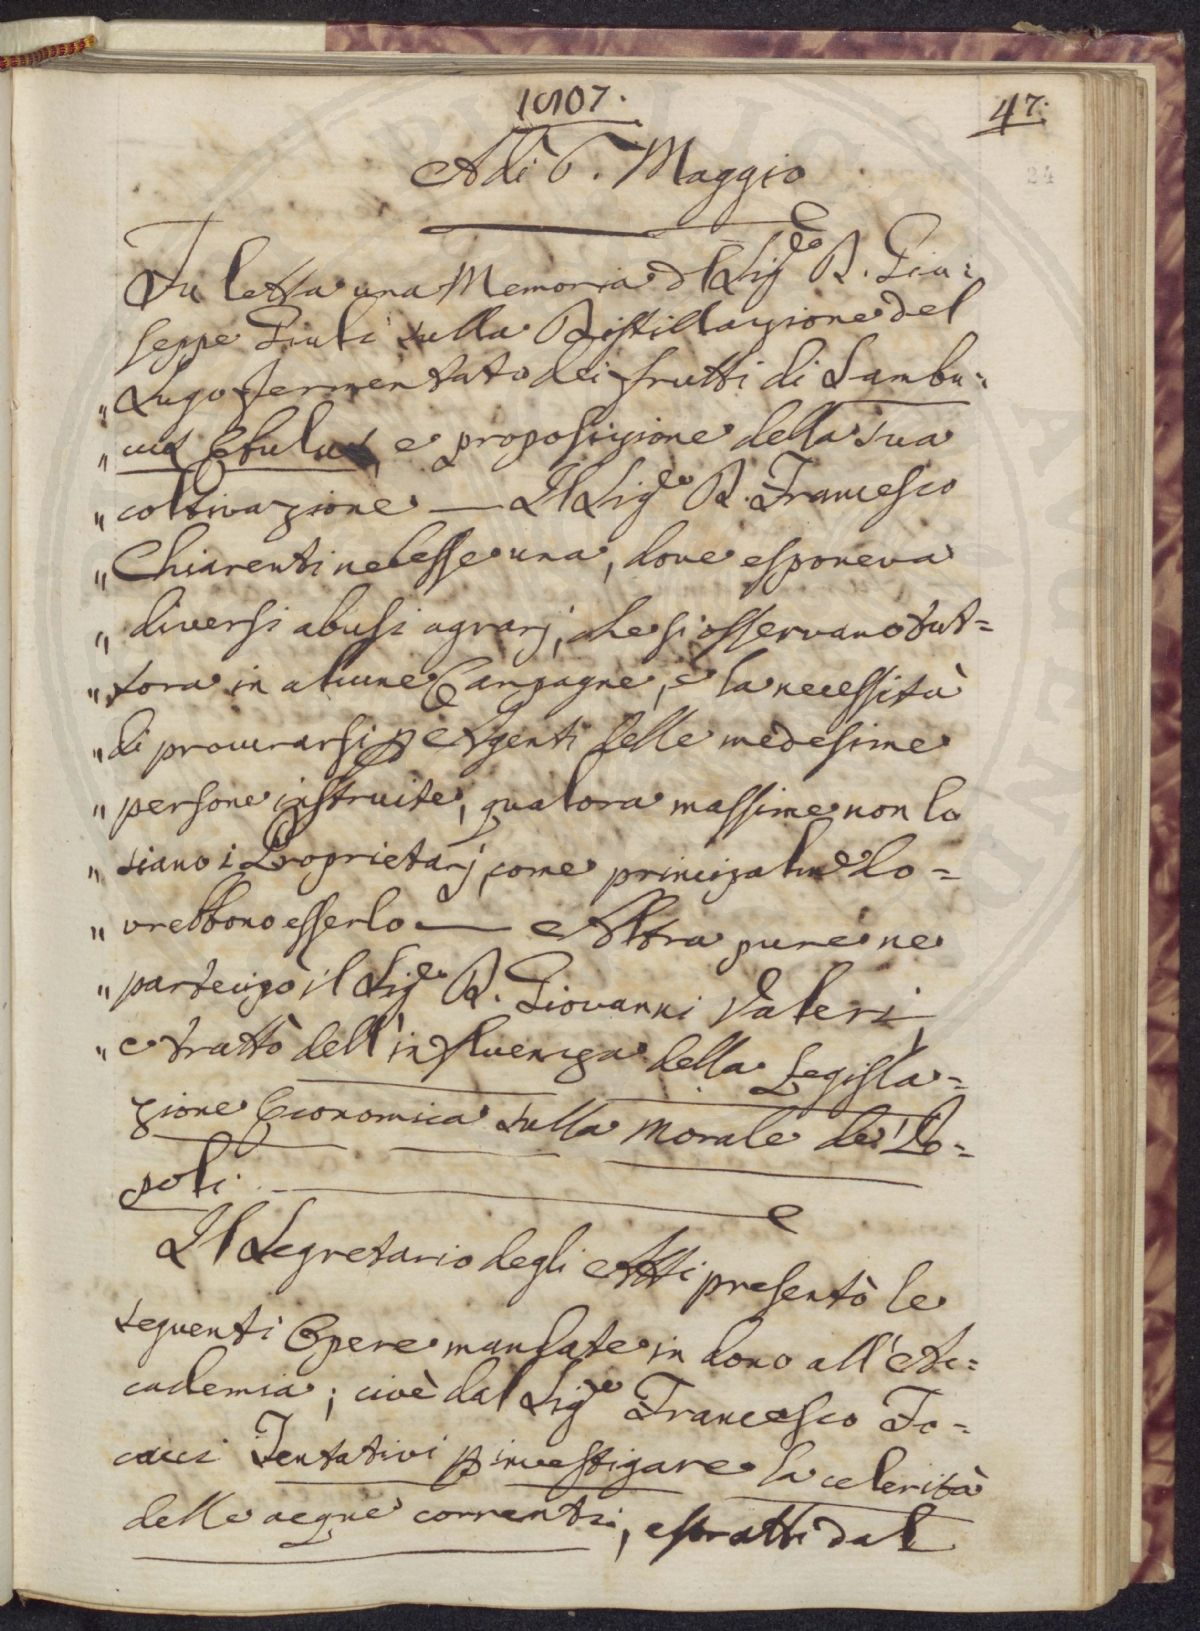 1807.
47.
24
Adì 6. Maggio
Fu letta una Memoria dl Sig.re D. Giu=
seppe Giuli sulla Distillazione del
„ Sugo fermentato dei frutti di Sambu=
„ cus Ebulus, e proposizione della sua
„ coltivazione — Il Sig.re D. Francesco
„ Chiarenti ne lesse una, dove esponeva
„ diversi abusi agrarj, che si osservano tut=
„ tora in alcune Campagne, e la necessità
„ di procurarsi p Agenti delle medesime
„ persone instruite, qualora massime non lo
„ siano i Proprietarj, come principalme do=
„ vrebbono esserlo — Altra pure ne
„ partecipò il Sig.re D. Giovanni Valeri,
„ e trattò dell'influenza della Legisla=
zione Economica sulla Morale dei Po=
poli.
Il Segretario degli Atti presentò le
seguenti Opere mandate in dono all'Ac=
cademia; cioè dal Sig.re Francesco Fo=
cacci Tentativi p investigare la celerità
delle acque correnti, estratti dal